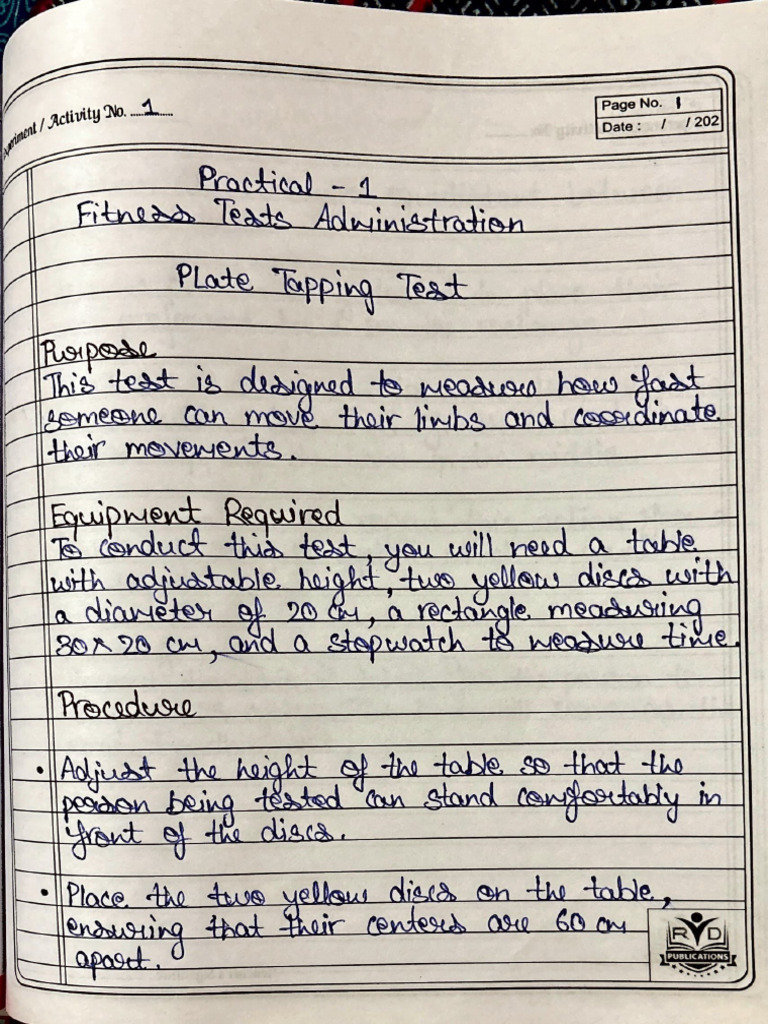 Experiment / Activity No. 1
Page No. 1
Date : / / 202
Practical - 1
Fitness Tests Administration
Plate Tapping Test
Purpose
This test is designed to measure how fast
someone can move their limbs and coordinate
their movements.
Equipment Required
To conduct this test, you will need a table
with adjustable height, two yellow discs with
a diameter of 20 cm, a rectangle measuring
30 x 20 cm, and a stopwatch to measure time.
Procedure
• Adjust the height of the table so that the
person being tested can stand comfortably in
front of the discs.
• Place the two yellow discs on the table,
ensuring that their centers are 60 cm
apart.
R D
PUBLICATIONS